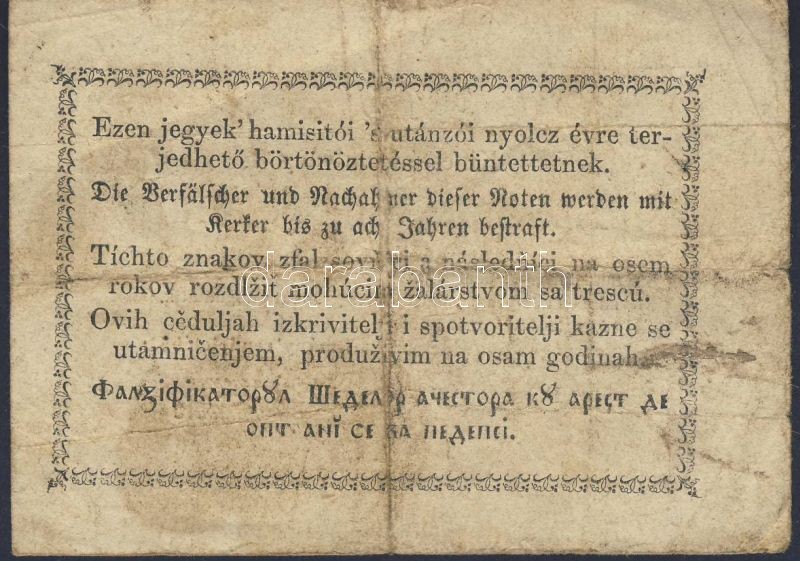 Ezen jegyek' hamisitói 's utánzói nyolcz évre ter-
jedhető börtönöztetéssel büntettetnek.
Die Verfälscher und Nachahmer dieser Noten werden mit
Kerker bis zu ach Jahren bestraft.
Tíchto znakov zfalšovníci a následníci na osem
rokov rozdĺžiť mohúcim žalárstvom sa trescú.
Ovih cěduljah izkrivitelji i spotvoritelji kazne se
utamničenjem, produživim na osam godinah.
Фалзіфікаторꙋл Шеделор ачестора кꙋ арест де
опт анĭ се ва педепсі.
darabanth